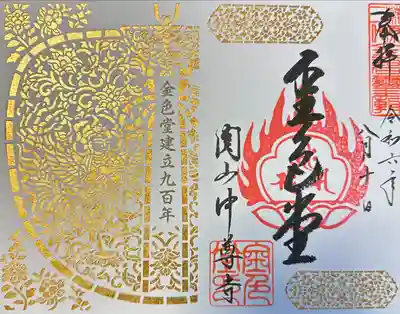 奉拝
令和六年
八月十日
金色堂
関山中尊寺
金色堂建立九百年